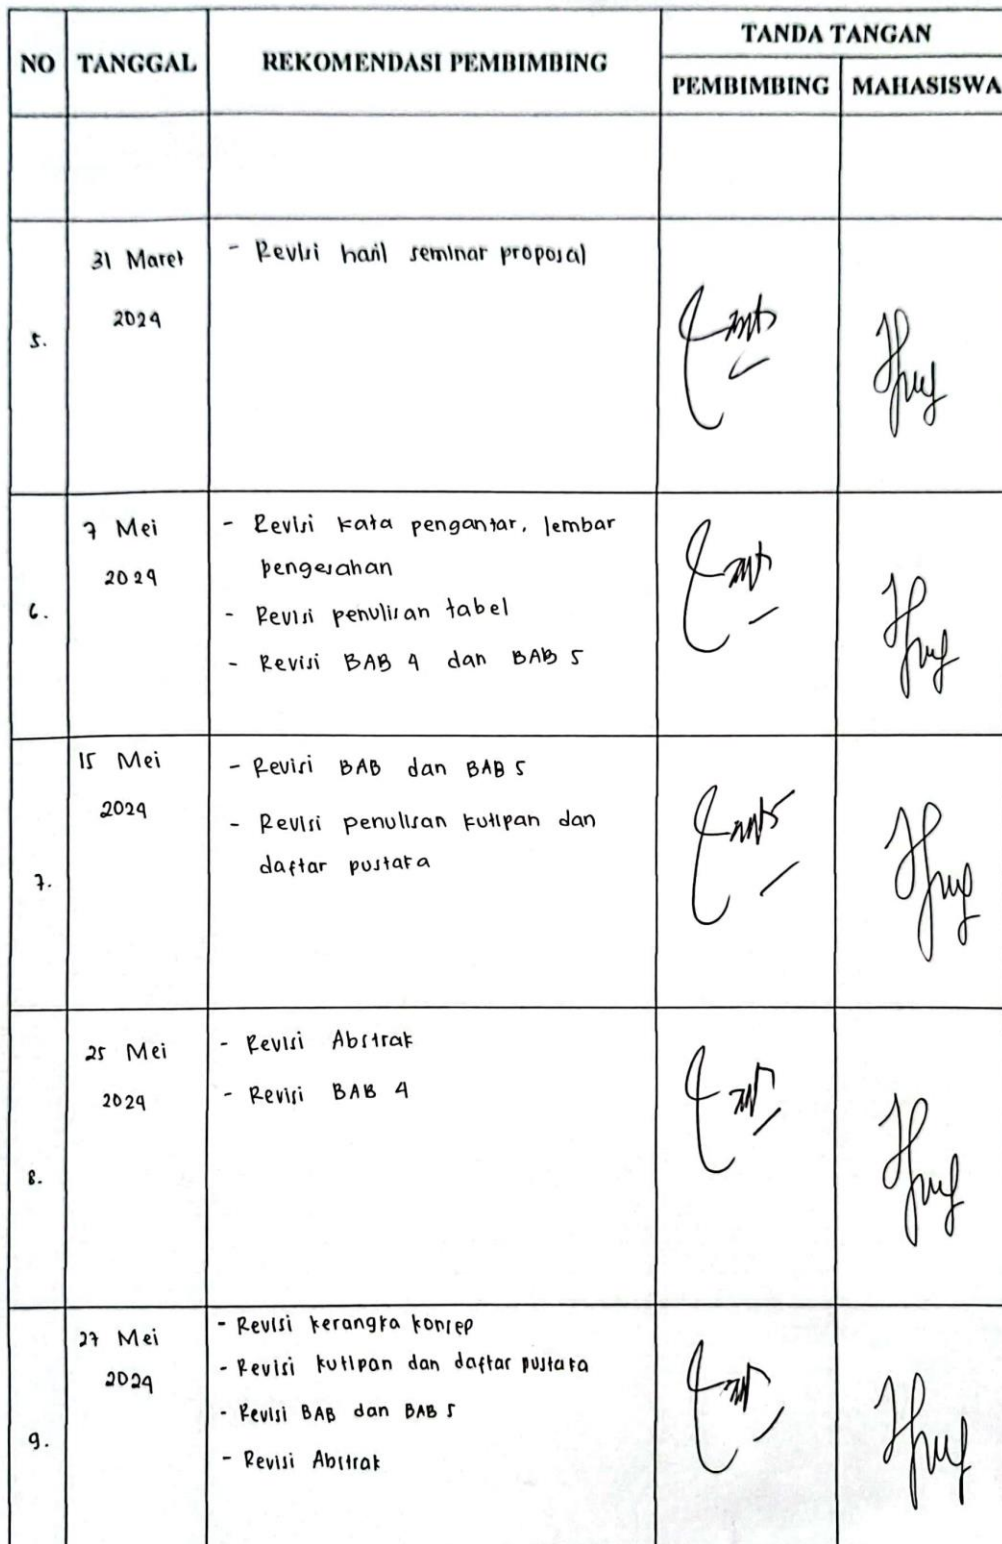 NO TANGGAL REKOMENDASI PEMBIMBING TANDA TANGAN
PEMBIMBING MAHASISWA
5.
31 Maret
2024
- Revisi hasil seminar proposal
6.
7 Mei
2024
- Revisi kata pengantar, lembar
pengesahan
- Revisi penulisan tabel
- Revisi BAB 4 dan BAB 5
7.
15 Mei
2024
- Revisi BAB dan BAB 5
- Revisi penulisan kutipan dan
daftar pustaka
8.
25 Mei
2024
- Revisi Abstrak
- Revisi BAB 4
9.
27 Mei
2024
- Revisi kerangka konsep
- Revisi kutipan dan daftar pustaka
- Revisi BAB dan BAB 5
- Revisi Abstrak